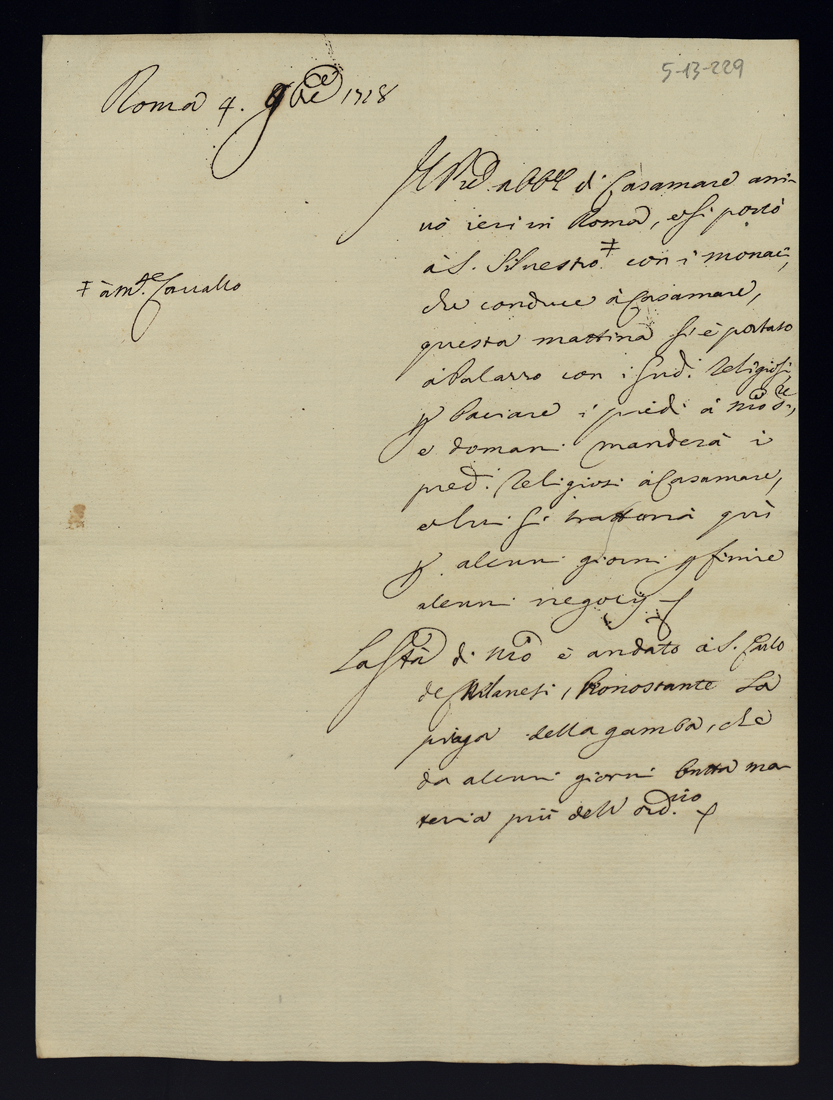 5-13-229
Roma 4. 9bre 1718
Il Pred. abbe di Casamare arri-
vò ieri in Roma, e si portò
à S. Silvestro ‡ con i monaci,
‡ à M.te Cavallo
che conduce à Casamare,
questa mattina si è portato
à Palazzo con i sud.i Religiosi,
p baciare i piedi à Nro Sre,
e domani manderà i
pred.i Religiosi à Casamare,
e lui si tratterrà quì
p. alcuni giorni p finire
alcuni negocij
La Stà di Nro è andato à S. Carlo
de Milanesi, nonostante la
piaga della gamba, che
da alcuni giorni butta ma-
teria più dell ord.rio